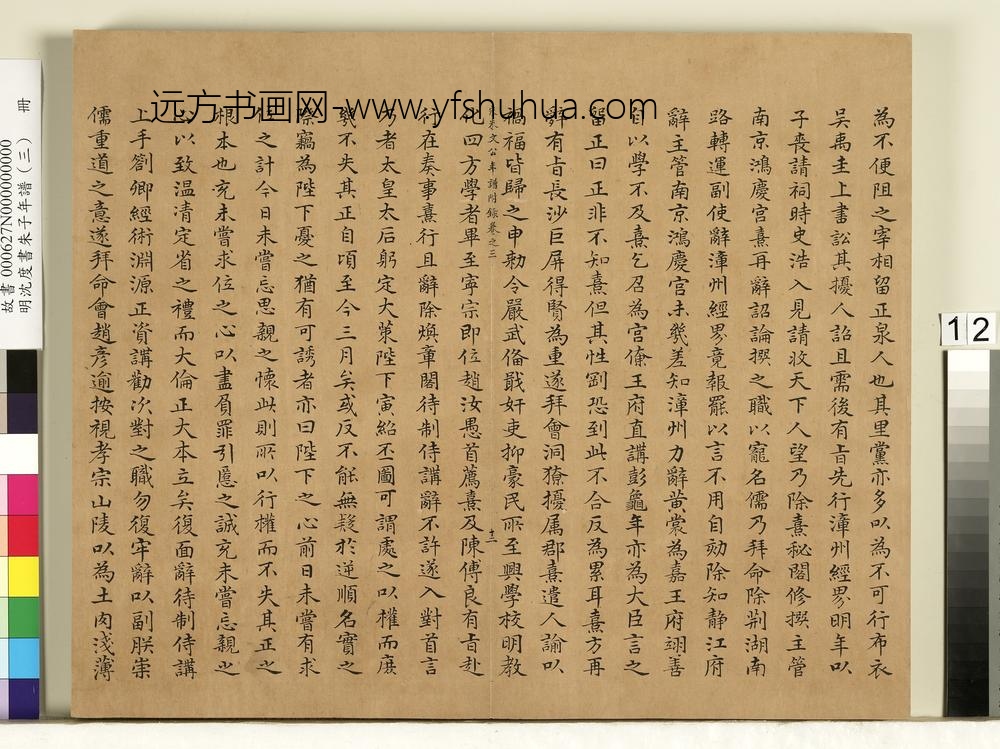 為不便阻之宰相留正泉人也其里黨亦多以為不可行布衣
吳禹圭上書訟其擾人詔且需後有旨先行漳州經界明年以
子喪請祠時史浩入見請收天下人望乃除熹秘閣修撰主管
南京鴻慶宮熹再辭詔論撰之職以寵名儒乃拜命除荆湖南
路轉運副使辭漳州經界竟報罷以言不用自劾除知静江府
辭主管南京鴻慶宮未㡬差知漳州力辭黄裳為嘉王府翊善
自以學不及熹乞召為宮僚王府直講彭龜年亦為大臣言之
留正曰正非不知熹但其性剛恐到此不合反為累耳熹方再
辭有旨長沙巨屏得賢為重遂拜㑹洞獠擾属郡熹遣人諭以
禍福皆歸之申勅令嚴武偹戢奸吏抑豪民所至興學校明教
朱文公年譜附錄卷之三
十二
化四方學者畢至寧宗即位趙汝愚首薦熹及陳傅良有旨赴
行在奏事熹行且辭除煥章閣待制侍講辭不許遂入對首言
乃者太皇太后躬定大策陛下寅紹丕圖可謂處之以權而庶
㡬不失其正自頃至今三月矣或反不能無疑於逆順名實之
際竊為陛下憂之猶有可諉者亦曰陛下之心前日未嘗有求
位之計今日未嘗忘思親之懷此則所以行權而不失其正之
根本也充未嘗求位之心以盡負罪引慝之誠充未嘗忘親之
心以致温凊定省之禮而大倫正大本立矣復面辭待制侍講
上手劄卿經術淵源正資講勸次對之職勿復牢辭以副朕崇
儒重道之意遂拜命㑹趙彦逾按視孝宗山陵以為土肉淺薄
远方书画网-www.yfshuhua.com
故書 000627N000000000
明沈度書朱子年譜（三） 冊
12